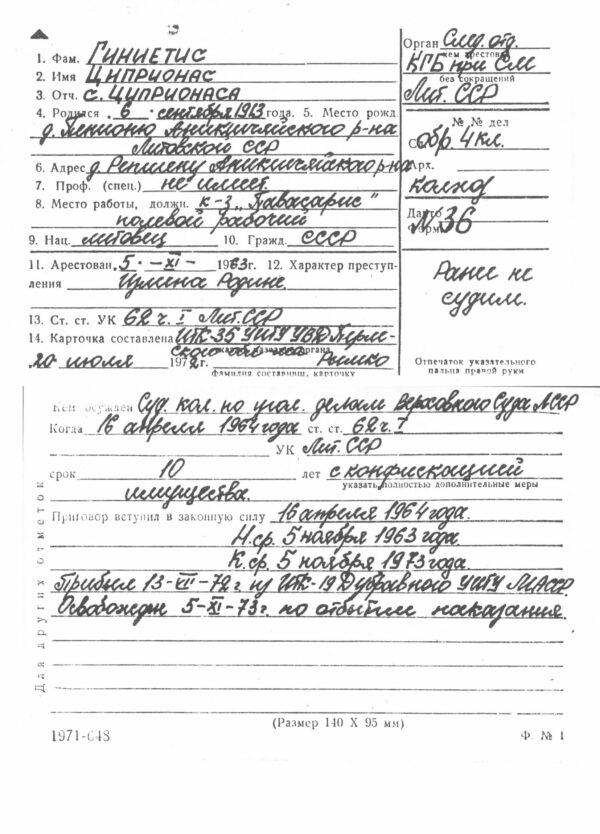 1. Фам. Гиниетис
2. Имя Циприонас
3. Отч. с. Циприонаса
4. Родился 6 · сентября 1913 года. 5. Место рожд.
д. Пенионю Аникщяйского р-на
Литовской ССР
6. Адрес д. Репшену Аникщяйского р-на
7. Проф. (спец.) не имеет.
8. Место работы, должн. к-з „Павасарис"
полевой рабочий
9. Нац. литовец 10. Гражд. СССР
11. Арестован 5 · -XI- 1963 г. 12. Характер преступ-
ления Измена Родине.
13. Ст. ст. УК 62 ч. I Лит. ССР
14. Карточка составлена ИТК-35 УИТУ УВД Перм-
ского обл-на
20 июля 1972 г.
фамилия составивш. карточку
Орган След. отд.
кем арестован
КГБ при СМ
без сокращений
Лит. ССР
№ № дел
обр. 4 кл.
Арх.
колход
№ 36
Ранее не
судим.
Отпечаток указательного
пальца правой руки
Кем осужден Суд. кол. по угол. делам Верховного Суда ЛССР
Когда 16 апреля 1964 года ст. ст. 62 ч. I
УК Лит. ССР
срок 10 лет с конфискацией
указать полностью дополнительные меры
имущества.
Приговор вступил в законную силу 16 апреля 1964 года.
Н. ср. 5 ноября 1963 года
К. ср. 5 ноября 1973 года.
Прибыл 13-VII-72 г. из ИТК-19 Дубравного УИТУ МАССР.
Освобожден 5-XI-73 г. по отбытии наказания.
Для других отметок
(Размер 140 X 95 мм)
1971-648
Ф. № 1